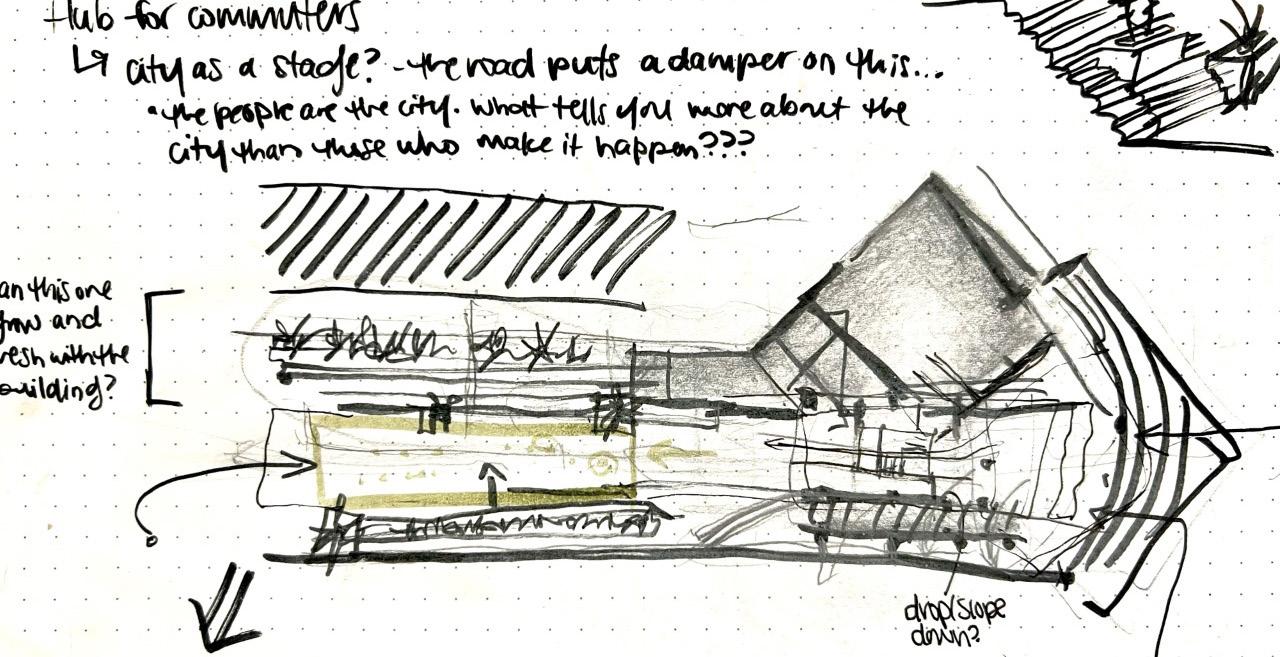 Hub for commuters
↳ city as a stage? - the road puts a damper on this...
• the people are the city. what tells you more about the
city than those who make it happen???
an this one
grow and
resh with the
building?
drop/slope
down?